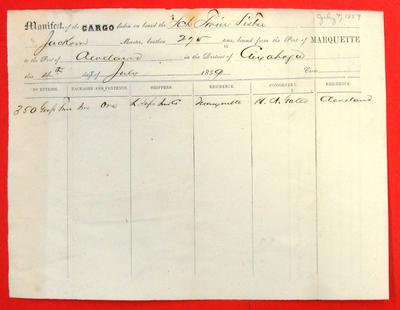 July 4, 1859
Manifest of the CARGO laden on board the Sch Twin Sister
Jackson Master, burthen 275 tons, bound from the Port of MARQUETTE
to the Port of Cleveland in the District of Cuyahoga
this 4th day of July 1859.
NO. ENTRIES. PACKAGES AND CONTENTS. SHIPPERS. RESIDENCE. CONSIGNEES. RESIDENCE.
350 Tons Ore Marquette H. A. Gates Cleveland